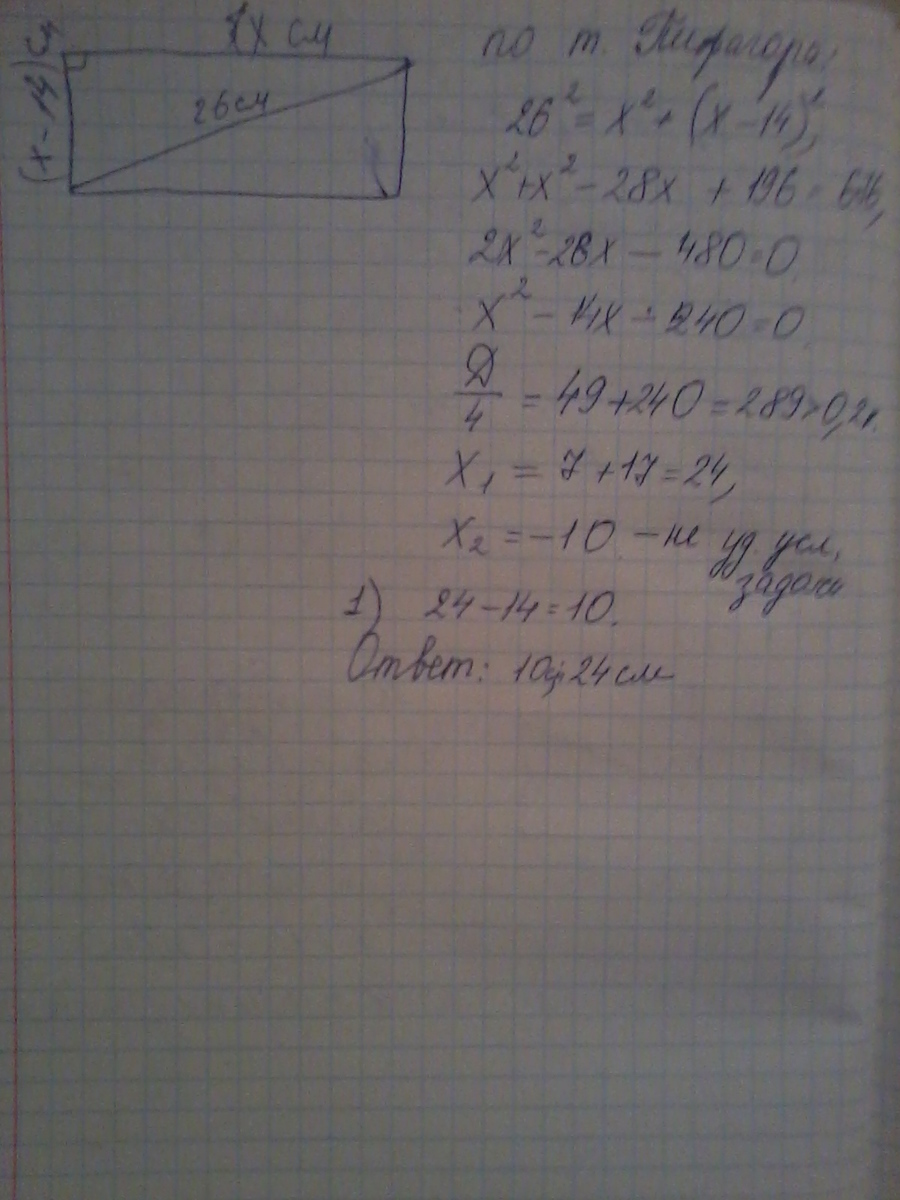 x см
(x - 14) см
26 см
по т. Пифагора:
26² = x² + (x - 14)²,
x² + x² - 28x + 196 = 676,
2x² - 28x - 480 = 0
x² - 14x - 240 = 0
Д/4 = 49 + 240 = 289 > 0, 2к.
x₁ = 7 + 17 = 24,
x₂ = -10 - не уд. усл.
задачи
1) 24 - 14 = 10.
Ответ: 10 и 24 см